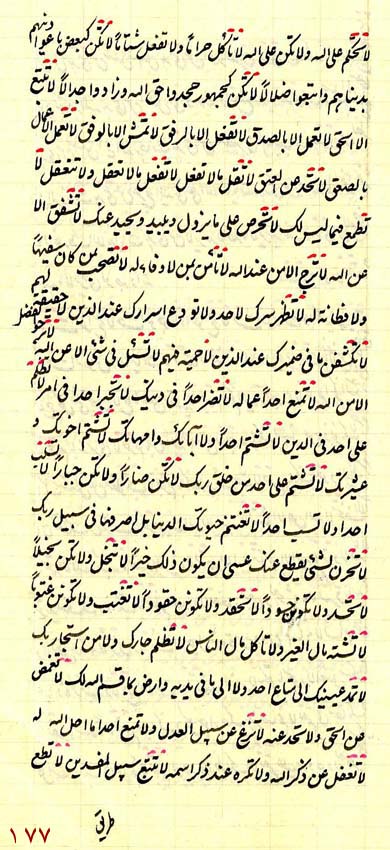 لا تحكم على الله ولا تكن على الله لا تأكل حراماً ولا تفعل شتاتاً لا تكن كبعض باعوا دينهم
بدنياهم واتبعوا ضلالاً لا تكن كجمهور جحدوا حق الله وزادوا جدالاً لا تتبع
الا الحق لا تعمل الا بالصدق لا تفعل الا بالرفق لا تمش الا بالوفق لا تعمل الاعمال
بالصفق لا تتخذ عن العتق لا تقل ما لا تفعل لا تفعل ما لا تعقل ولا تتغفل لا
تطمع فيما ليس لك لا تحرص على ما يزول ويبيد ويحيد عنك لا تشفق الا
عن الله لا ترج الامن عند الله لا تأمن بمن لا وفاء له لا تصحب بمن كان سفيهاً
ولا فطانة له لا تظهر سرك لاحد ولا تودع اسرارك عند الذين لا حقيقة لهم
لا تكشفن ما في ضميرك عند الذين لا حمية فيهم لا تسئل في شئ الا عن الله
الامن الله لا تمنع احداً عماله لا تضر احداً في دينك لا تجبر احدا في امر لا تظلم
على احد في الدين لا تشتم احداً ولا آبائك وامهاتك لا تشتم اخوتك و
عشيرتك لا تشتم على احد من خلق ربك لا تكن ضاراً ولا تكن جباراً لا تسلب
احدا ولا تسب احداً لا تغتنم حيوتك الدنيا بل اصرفها في سبيل ربك
لا تحزن لشئ يقطع عنك عسى ان يكون ذلك خيراً لا تبخل ولا تكن بخيلاً
لا تحسد ولا تكونن حسوداً لا تحقد ولا تكونن حقوداً لا تغتب ولا تكونن مغتاباً
لا تشته مال الغير ولا تأكل مال الناس لا تظلم جارك ولا من استجار بك
لا تمد عينيك الى متاع احد ولا الى ما في يديه وارض بما قسم الله لك لا تغمض
عن الحق ولا تتخذ عنه لا تزغ عن سبيل العدل ولا تمنع احدا ما احل الله له
لا تغفل عن ذكر الله ولا تكره عند ذكر اسمه لا تتبع سبيل المفسدين لا تطع
طريق
١٧٧